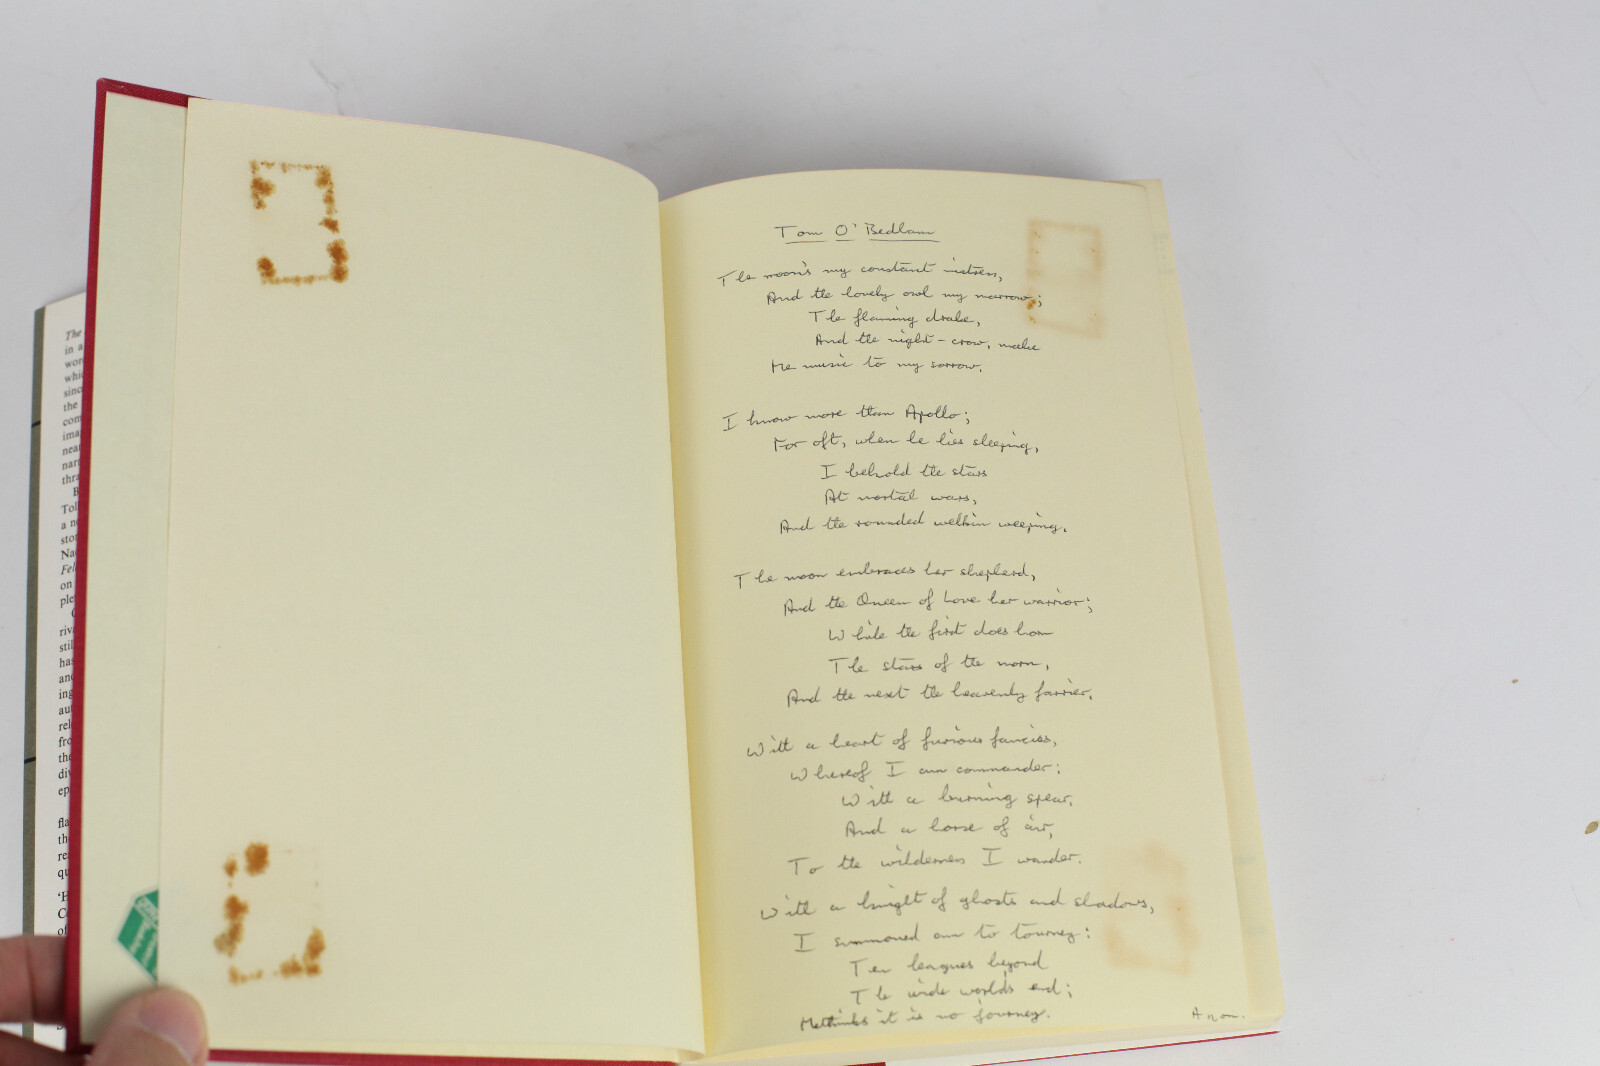 The
in a
wor
whic
sinc
the
com
ima
nea
nar
thra
B
Tol
a n
stor
Na
Fel
on
ple
riv
stil
has
and
ing
aut
rel
fro
the
div
ep
fla
th
re
qu
'H
C
of
Tom O' Bedlam
The moon's my constant mistress,
And the lovely owl my marrow;
The flaming drake,
And the night-crow, make
Me music to my sorrow.
I know more than Apollo;
For oft, when he lies sleeping,
I behold the stars
At mortal wars,
And the rounded welkin weeping.
The moon embraces her shepherd,
And the Queen of Love her warrior;
While the first does horn
The stars of the morn,
And the next the heavenly farrier.
With a heart of furious fancies,
Whereof I am commander:
With a burning spear,
And a horse of air,
To the wilderness I wander.
With a knight of ghosts and shadows,
I summoned am to tourney:
Ten leagues beyond
The wide world's end;
Methinks it is no journey.
Anon.